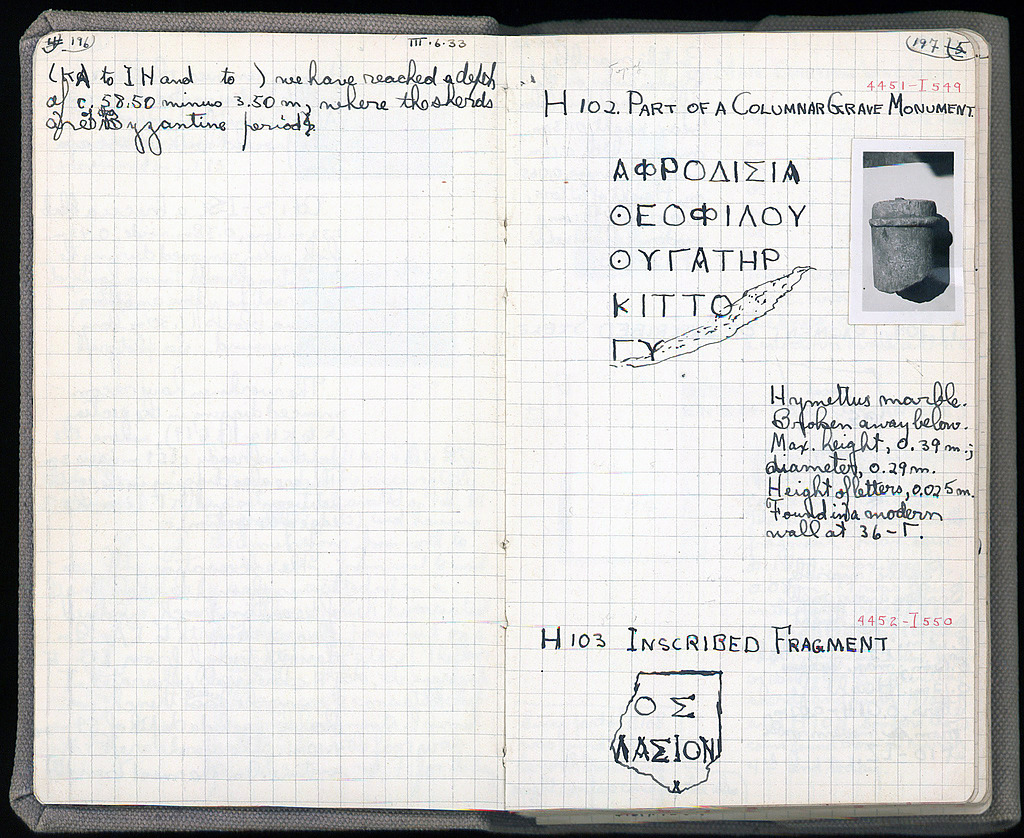 196
III·6·33
to I H and to ) we have reached a depth
of c. 58.50 minus 3.50 m, where the sherds
are Byzantine period
197
4451-I 549
H 102. PART OF A COLUMNAR GRAVE MONUMENT.
ΑΦΡΟΔΙΣΙΑ
ΘΕΟΦΙΛΟΥ
ΘΥΓΑΤΗΡ
ΚΙΤΤΟ
ΓΥ
Hymettus marble.
Broken away below.
Max. height, 0.39 m.;
diameter, 0.29 m.
Height of letters, 0.025 m.
Found in a modern
wall at 36-Γ.
4452-I 550
H 103 INSCRIBED FRAGMENT
Ο Σ
ΛΑΣΙΟΝ